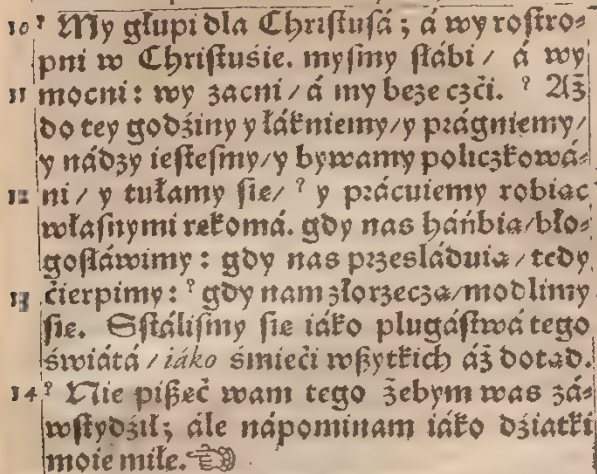 10 ? My głupi dla Chriſtuſá; á wy roſtro=
pni w Chriſtuśie. myſmy ſłábi / á wy
11 mocni: wy zacni / á my beze czći. ? Aż
do tey godźiny y łákniemy/y prágniemy/
y nádzy ieſteſmy/y bywamy policzkowá=
12 ni / y tułamy ſie/ ? y prácuiemy robiąc
własnymi rękomá. gdy nas háńbią/bło=
goſłáwimy: gdy nas przeſláduią / tedy
13 ćierpimy: ? gdy nam złorzeczą/modlimy
ſie. Sſtáliſmy ſie iáko plugáſtwá tego
świátá / iáko śmieći wßytkich áż dotąd.
14 ? Nie pißęć wam tego żebym was zá=
wſtydźił; ále nápominam iáko dźiatki
moie miłe. ☜